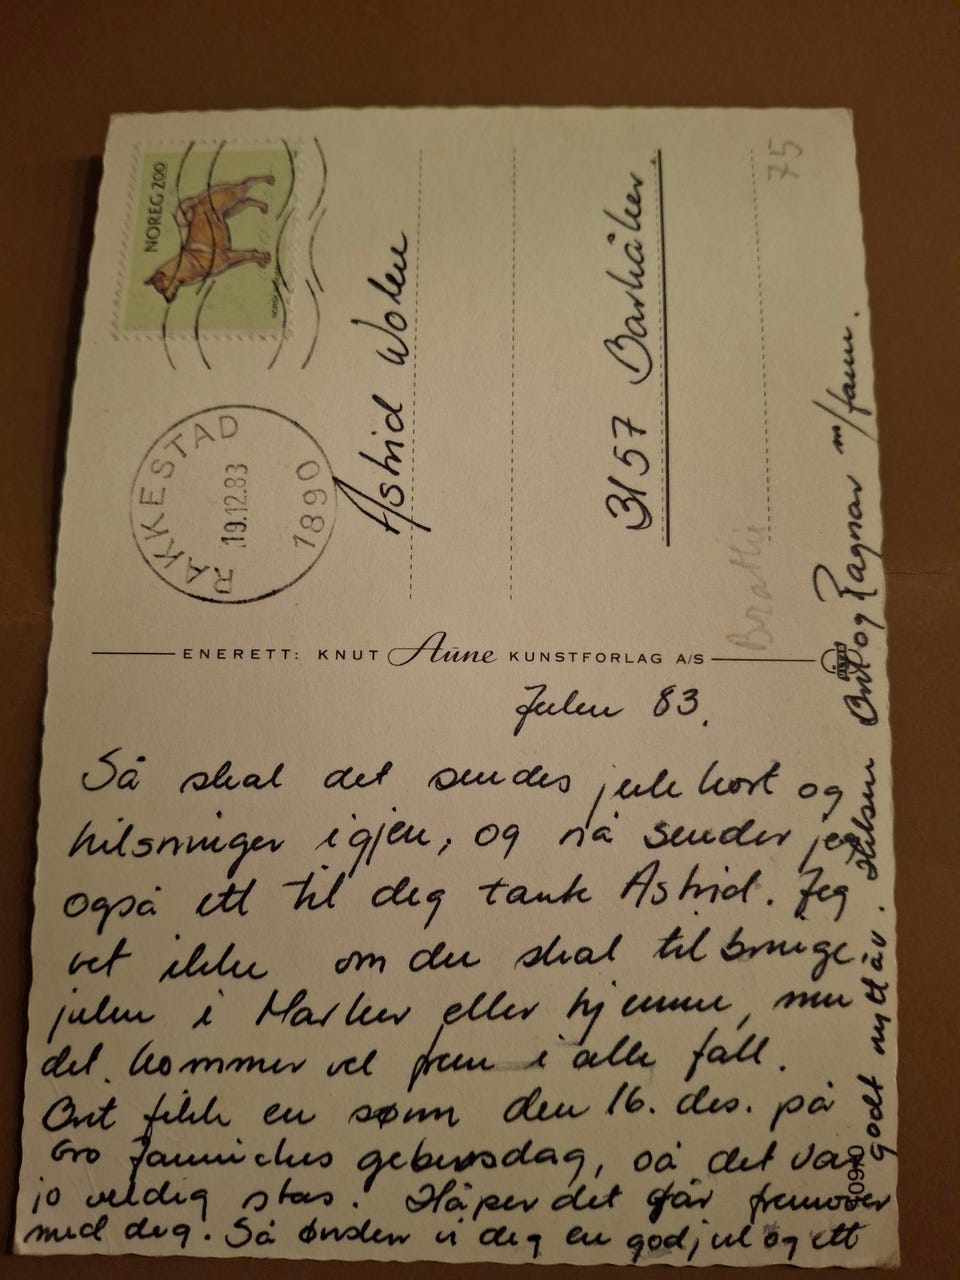 NOREG 200
RAKKESTAD
19.12.83
1890
Astrid Wolen
3157 Barkåker.
75
Brattli
ENERETT: KNUT Aune KUNSTFORLAG A/S
Julen 83.
Så skal det sendes julekort og
hilsninger igjen, og nå sender jeg
også ett til deg tante Astrid. Jeg
vet ikke om du skal tilbringe
julen i Marker eller hjemme, men
det kommer vel frem i alle fall.
fikk en sønn den 16. des. på
Gro Jannickes gebursdag, så det var
jo veldig stas. Håper det går fremover
med deg. Så ønsker vi deg en god jul og ett
godt nytt år. Hilsen og Ragnar m/fam.